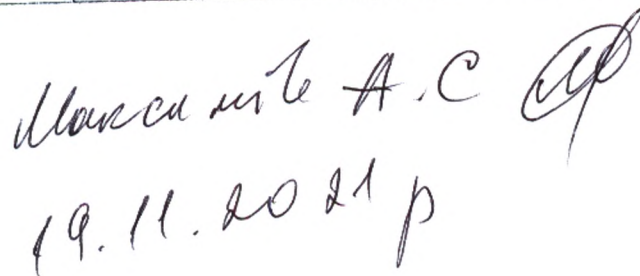 Максимів А.С
19.11.2021 р